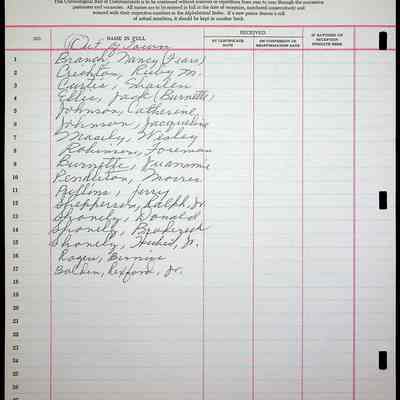 This Chronological Roll of Communicants is to be continued without omission or repetition from year to year through the successive
pastorates and vacancies. All names are to be entered in full in the date of reception, numbered consecutively and
entered with their respective numbers in the Alphabetical Index. If a new pastor desires a roll
of actual members, it should be kept in another book.
RECEIVED
NO. NAME IN FULL BY CERTIFICATE DATE ON CONFESSION OR REAFFIRMATION DATE IF BAPTIZED ON RECEPTION INDICATE HERE
Out of Town
1 Branch, Nancy (Fears)
2 Creighton, Ruby M.
3 Curtis, Sharlen
4 Ellis, Jack (Burnette)
5 Johnson, Catherine
6 Johnson, Jacqueline
7 Mosily, Wesley
8 Robinson, Foreman
9 Burnette, Juanome
10 Pendleton, Morris
11 Pullins, Jerry
12 Shepperson, Ralph, Jr.
13 Shonely, Donald
14 Shonely,
15 Shonely, Jr.
16 Rogers, Bernice
17 Bolden, Rexford, Jr.
18
19
20
21
22
23
24
25
26